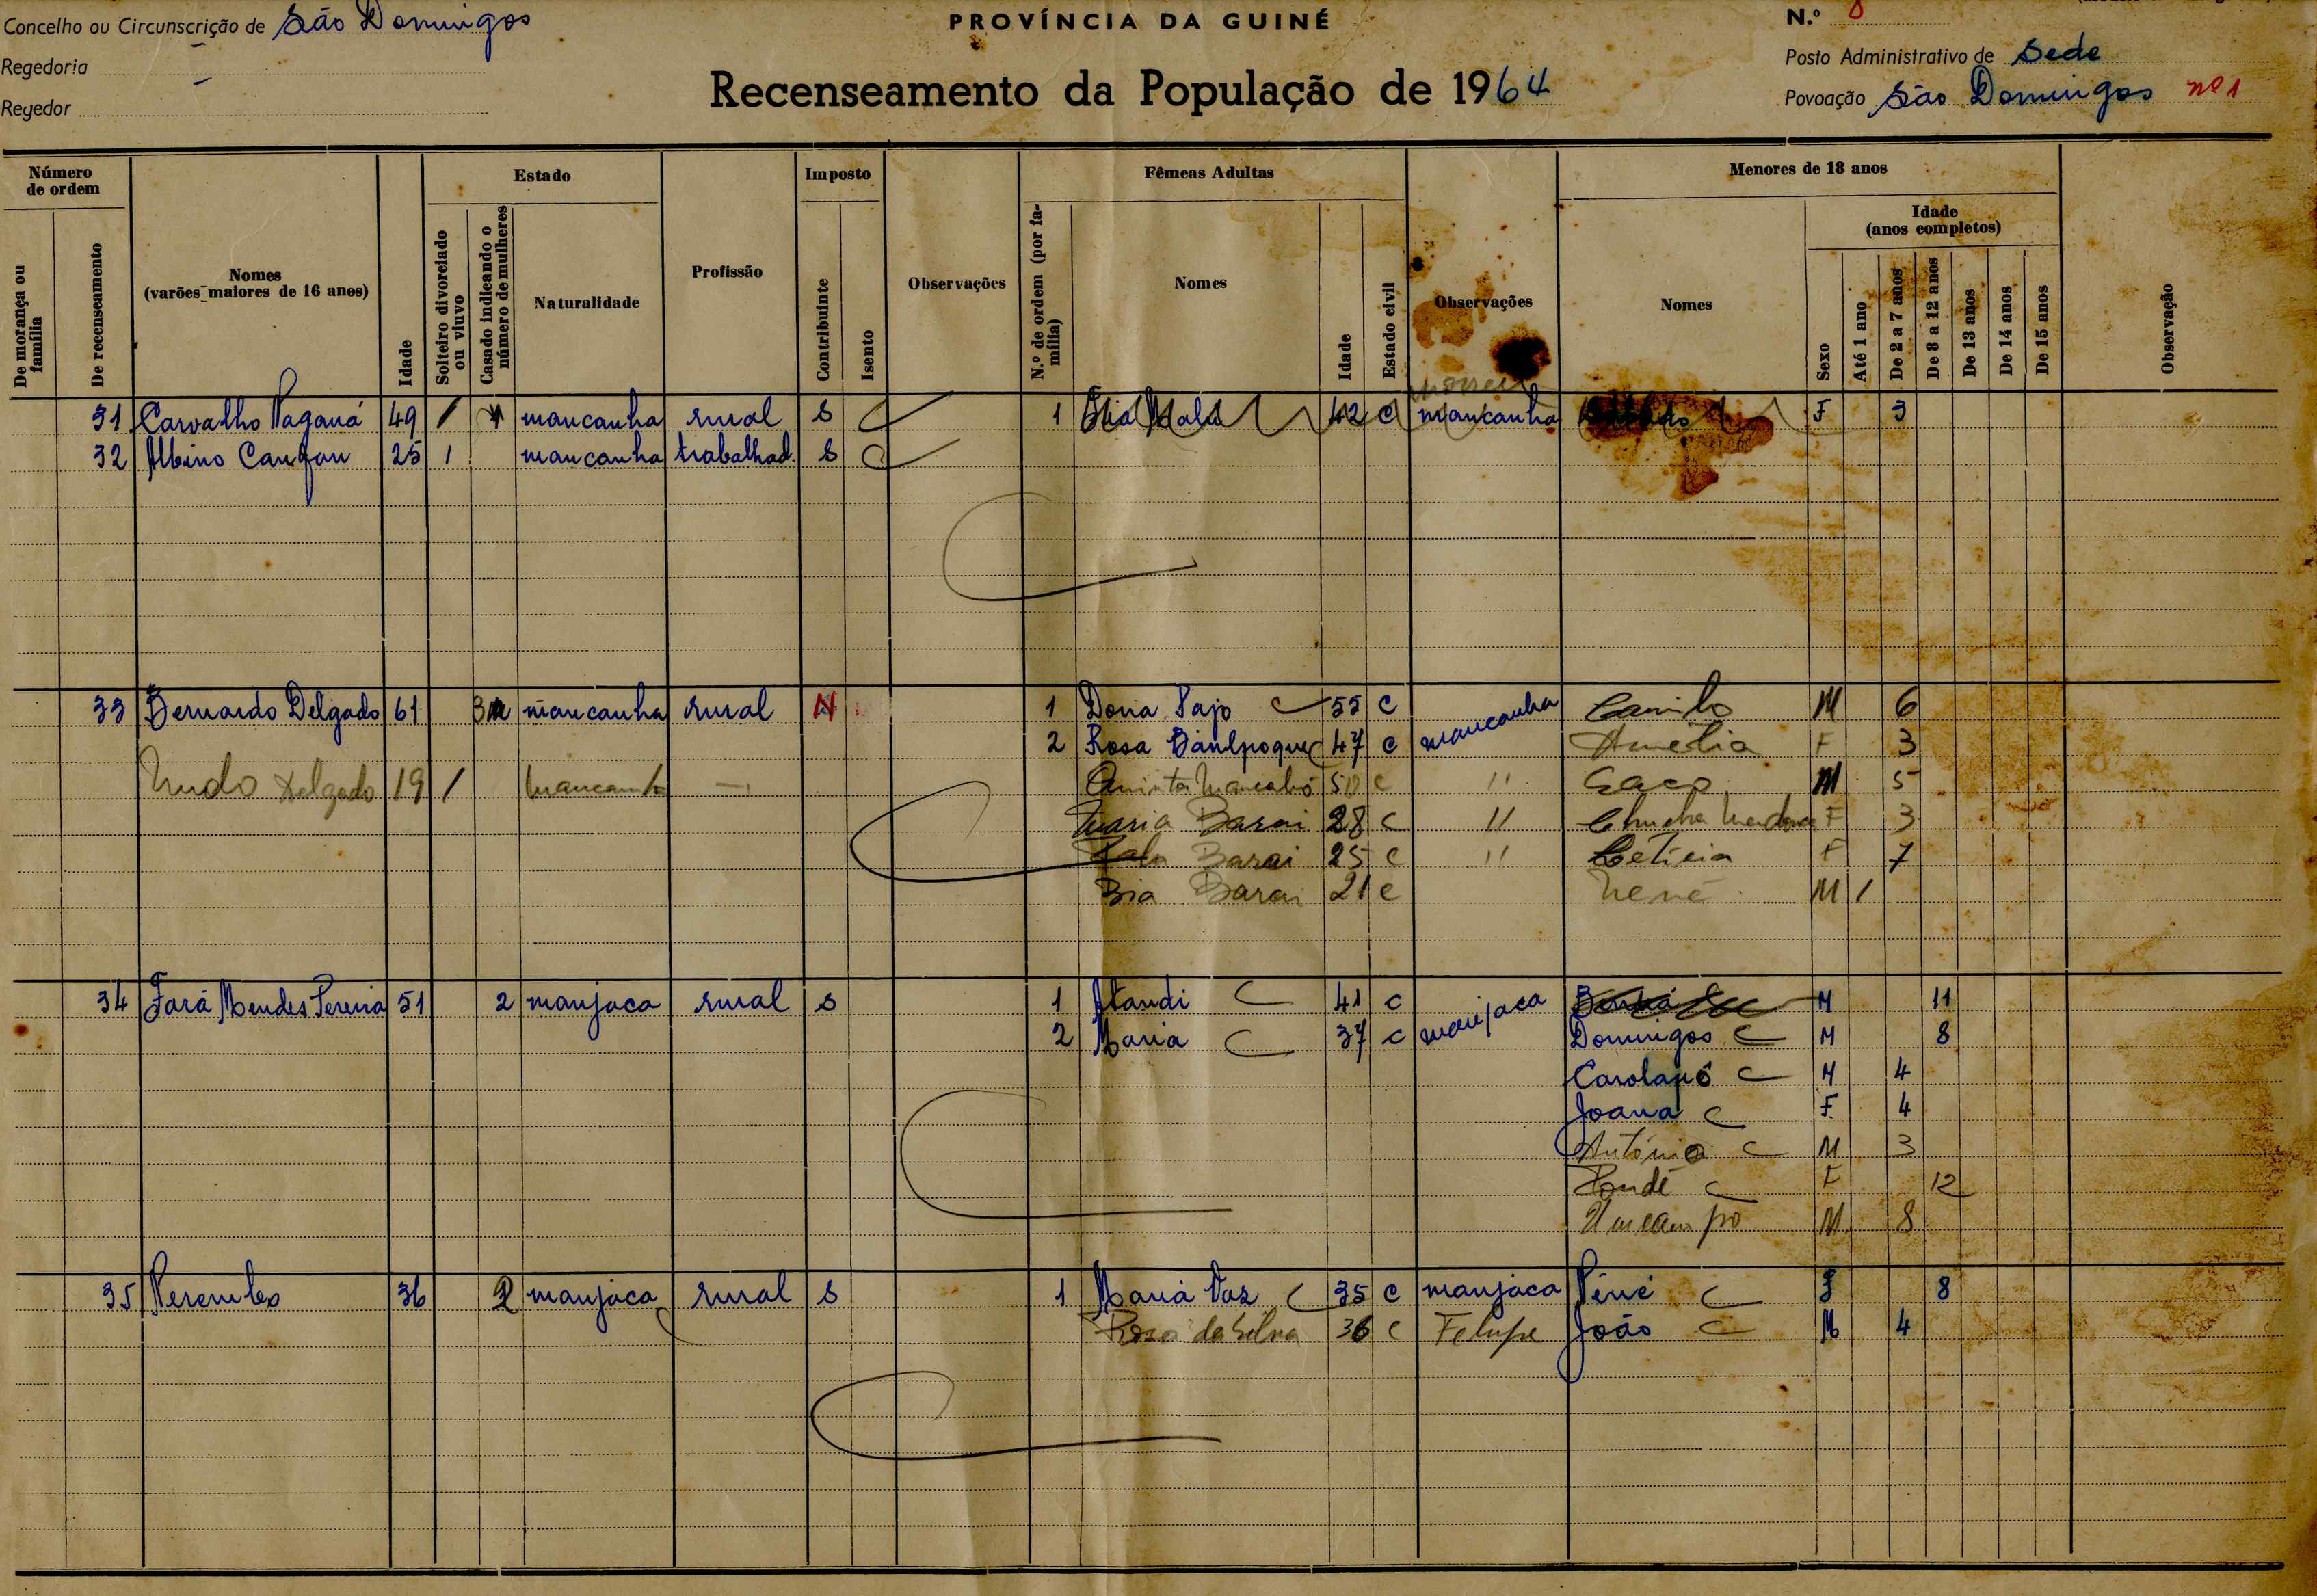 Concelho ou Circunscrição de São Domingos
PROVÍNCIA DA GUINÉ
N.º 8
Regedoria —
Posto Administrativo de Sede
Regedor —
Recenseamento da População de 1964
Povoação São Domingos nº 1
Número de ordem
De morança ou família
De recenseamento
Nomes
(varões maiores de 16 anos)
Idade
Estado
Solteiro divorciado ou viuvo
Casado indicando o número de mulheres
Naturalidade
Profissão
Imposto
Contribuinte
Isento
Observações
Fêmeas Adultas
N.º de ordem (por família)
Nomes
Idade
Estado civil
Observações
Menores de 18 anos
Nomes
Idade
(anos completos)
Sexo
Até 1 ano
De 2 a 7 anos
De 8 a 12 anos
De 13 anos
De 14 anos
De 15 anos
Observação
31 Carvalho Paganá 49 / mancanha rural S 1 42 C mancanha F 3
32 Albino 25 1 mancanha trabalhad. S
33 Bernardo Delgado 61 3 mancanha rural N 1 Dona Sajo 55 C mancanha Camilo M 6
2 Rosa 47 C Amelia F 3
Delgado 19 / mancanha — 50 C " M 5
Maria Barai 28 C " F 3
Barai 25 C " Letícia F 7
Bia Barai 21 C Nené M 1
34 Fará Mendes Pereira 51 2 manjaca rural S 1 Atandi 41 C manjaca M 11
2 Maria 37 C Domingos M 8
Carolapó M 4
Joana F. 4
António M 3
F 12
M 8
35 36 2 manjaca rural S 1 Maria Vaz 35 C manjaca F 8
Rosa da Silva 36 C Felupe João M 4